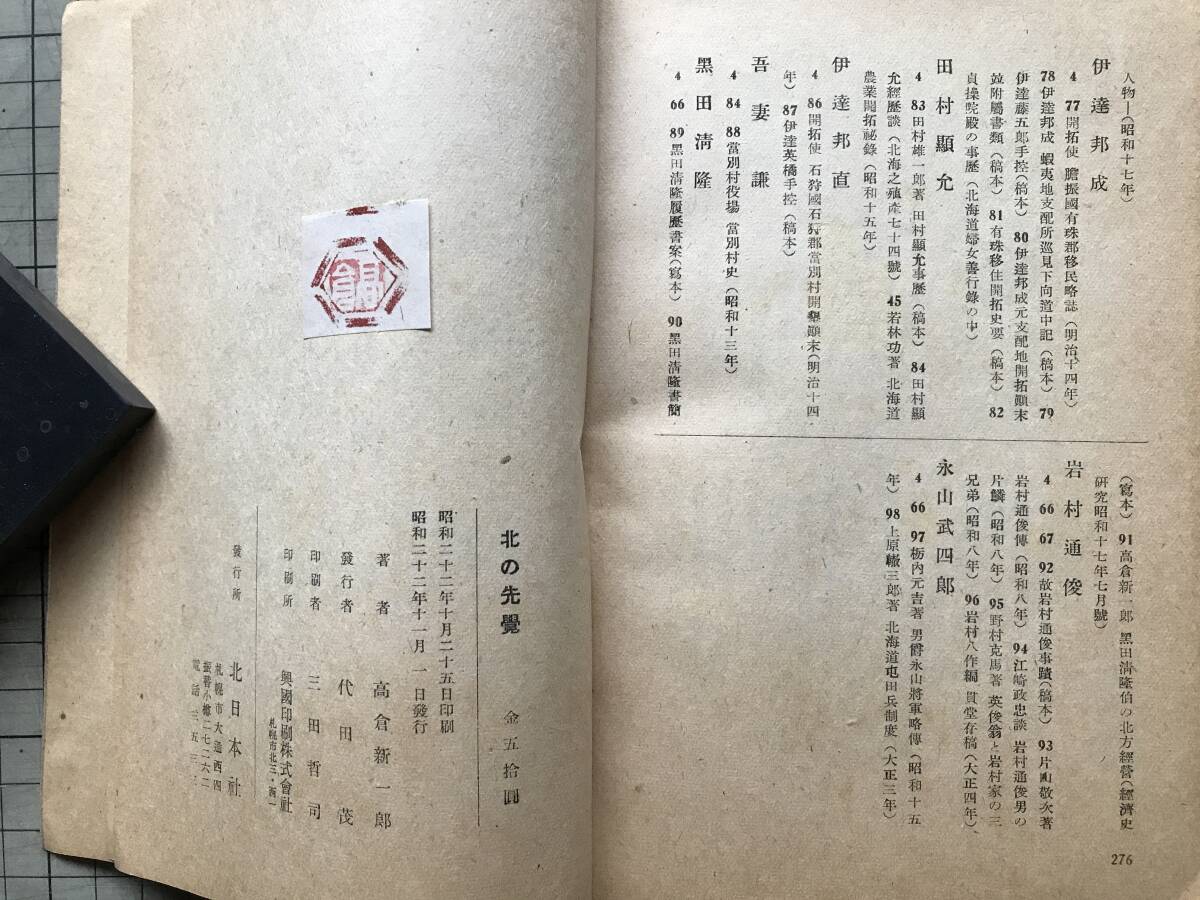 人物―(昭和十七年)
伊達邦成
4 77開拓使 膽振國有珠郡移民略誌(明治十四年)
78伊達邦成 蝦夷地支配所巡見下向道中記(稿本) 79
伊達藤五郎手控(稿本) 80伊達邦成元支配地開拓顚末
竝附屬書類(稿本) 81有珠移住開拓史要(稿本) 82
貞操院殿の事歷(北海道婦女善行錄の中)
田村顯允
4 83田村雄一郎著 田村顯允事歷(稿本) 84田村顯
允經歷談(北海之殖產七十四號) 45若林功著 北海道
農業開拓祕錄(昭和十五年)
伊達邦直
4 86開拓使 石狩國石狩郡當別村開墾顚末(明治十四
年) 87伊達英橋手控(稿本)
吾妻謙
4 84 88當別村役場 當別村史(昭和十三年)
黑田淸隆
4 66 89黑田淸隆履歷書案(寫本) 90黑田淸隆書簡
(寫本) 91高倉新一郎 黑田淸隆伯の北方經營(經濟史
硏究昭和十七年七月號)
岩村通俊
4 66 67 92故岩村通俊事蹟(稿本) 93片山敬次著
岩村通俊傳(昭和八年) 94江崎政忠談 岩村通俊男の
片鱗(昭和八年) 95野村克馬著 英俊翁と岩村家の三
兄弟(昭和八年) 96岩村八作編 貫堂存稿(大正四年)、
永山武四郎
4 66 97栃內元吉著 男爵永山將軍略傳(昭和十五
年) 98上原轍三郎著 北海道屯田兵制度(大正三年)
276
北の先覺
金五拾圓
昭和二十二年十月二十五日印刷
昭和二十二年十一月一日發行
著者 高倉新一郎
發行者 代田茂
印刷者 三田哲司
印刷所 興國印刷株式會社
札幌市北三・西一
發行所 北日本社
札幌市大通西四
振替小樽二七二六二
電話三五三一